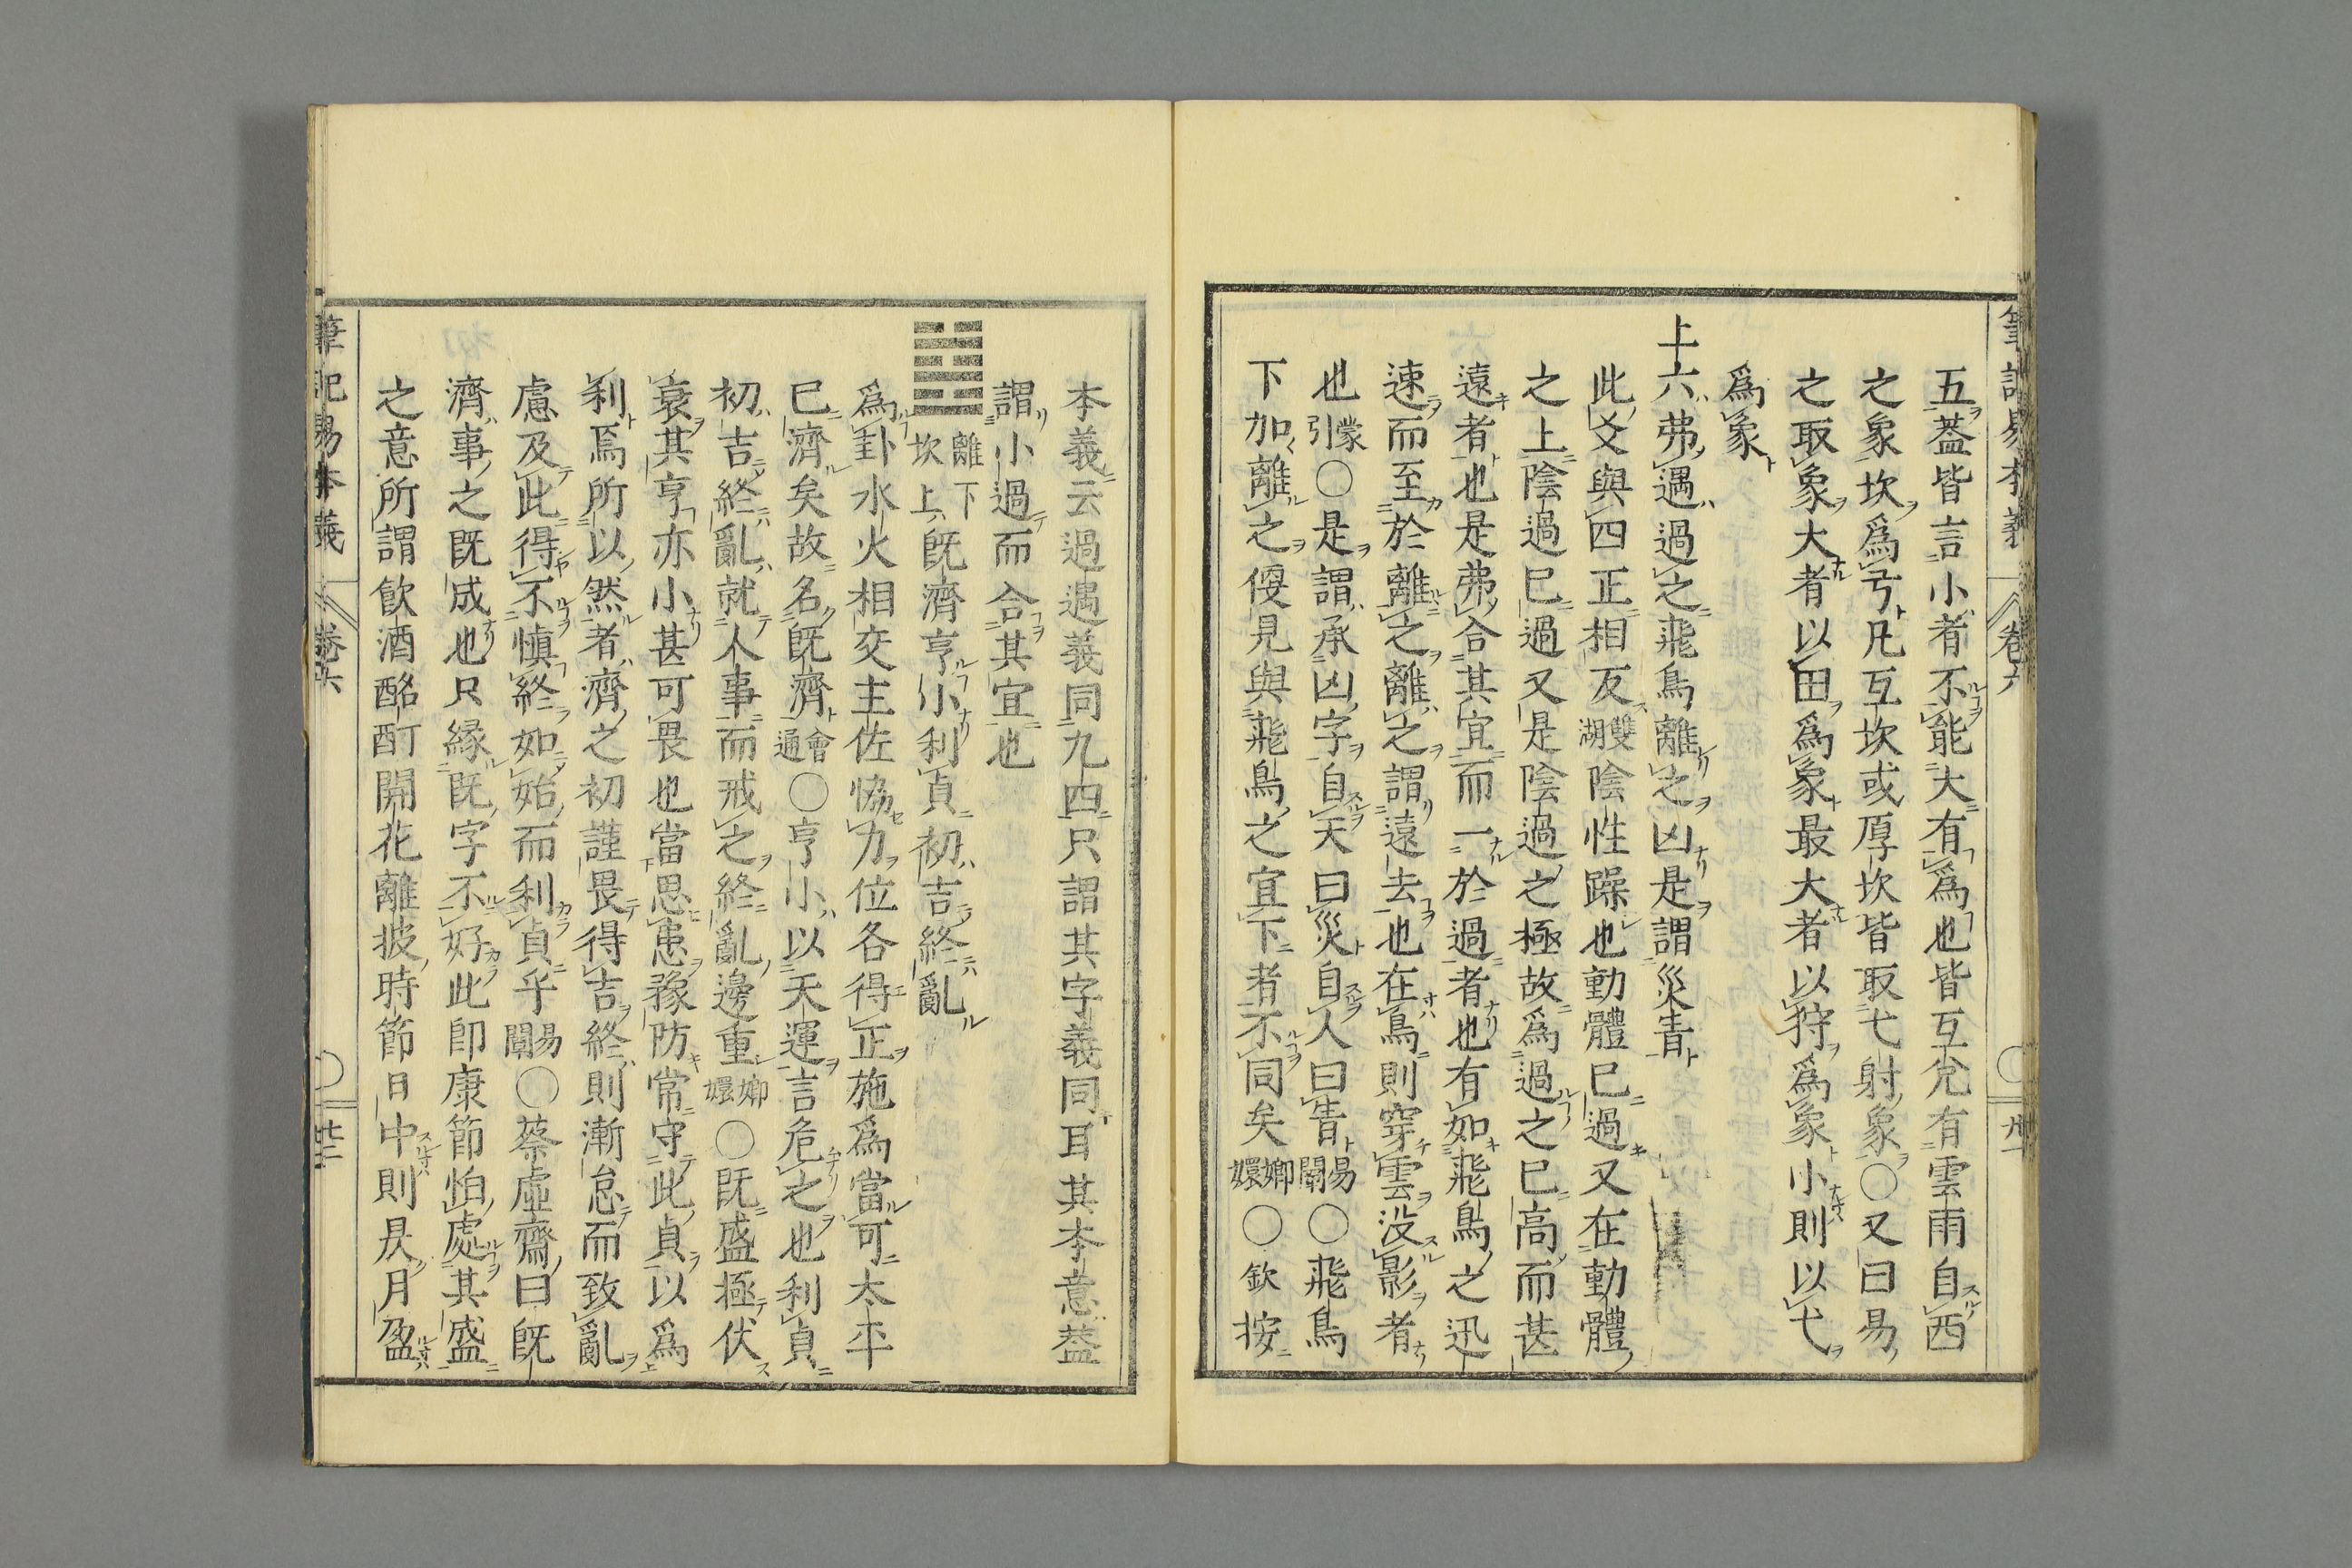 筆記易本義 卷六 〇 卅一
五蓋皆言小者不能大有爲也皆互兌有雲雨自西
之象坎爲弓凡互坎或厚坎皆取弋射象〇又曰易
之取象大者以田爲象最大者以狩爲象小則以弋
爲象
上六弗遇過之飛鳥離之凶是謂災眚
此爻與四正相反雙湖陰性躁也動體已過又在動體
之上陰過已過又是陰過之極故爲過之已高而甚
遠者也是弗合其宜而一於過者也有如飛鳥之迅
速而至於離之離之謂遠去也在鳥則穿雲沒影者
也蒙引〇是謂承凶字自天曰災自人曰眚易闡〇飛鳥
下加離之便見與飛鳥之宜下者不同矣嫏嬛〇欽按
本義云過遇義同九四只謂其字義同耳其本意蓋
謂小過而合其宜也
離下坎上既濟亨小利貞初吉終亂
爲卦水火相交主佐恊力位各得正施爲當可太平
已濟矣故名既濟會通〇亨小以天運言危之也利貞
初吉終亂就人事而戒之終亂邊重嫏嬛〇既盛極伏
衰其亨亦小甚可畏也當思患豫防常守此貞以爲
利焉所以然者濟之初謹畏得吉終則漸怠而致亂
慮及此得不慎終如始而利貞乎易闡〇蔡虛齋曰既
濟事之既成也只緣既字不好此即康節怕處其盛
之意所謂飲酒酩酊開花離披時節日中則昃月盈
筆記易本義 卷六 〇 卅二